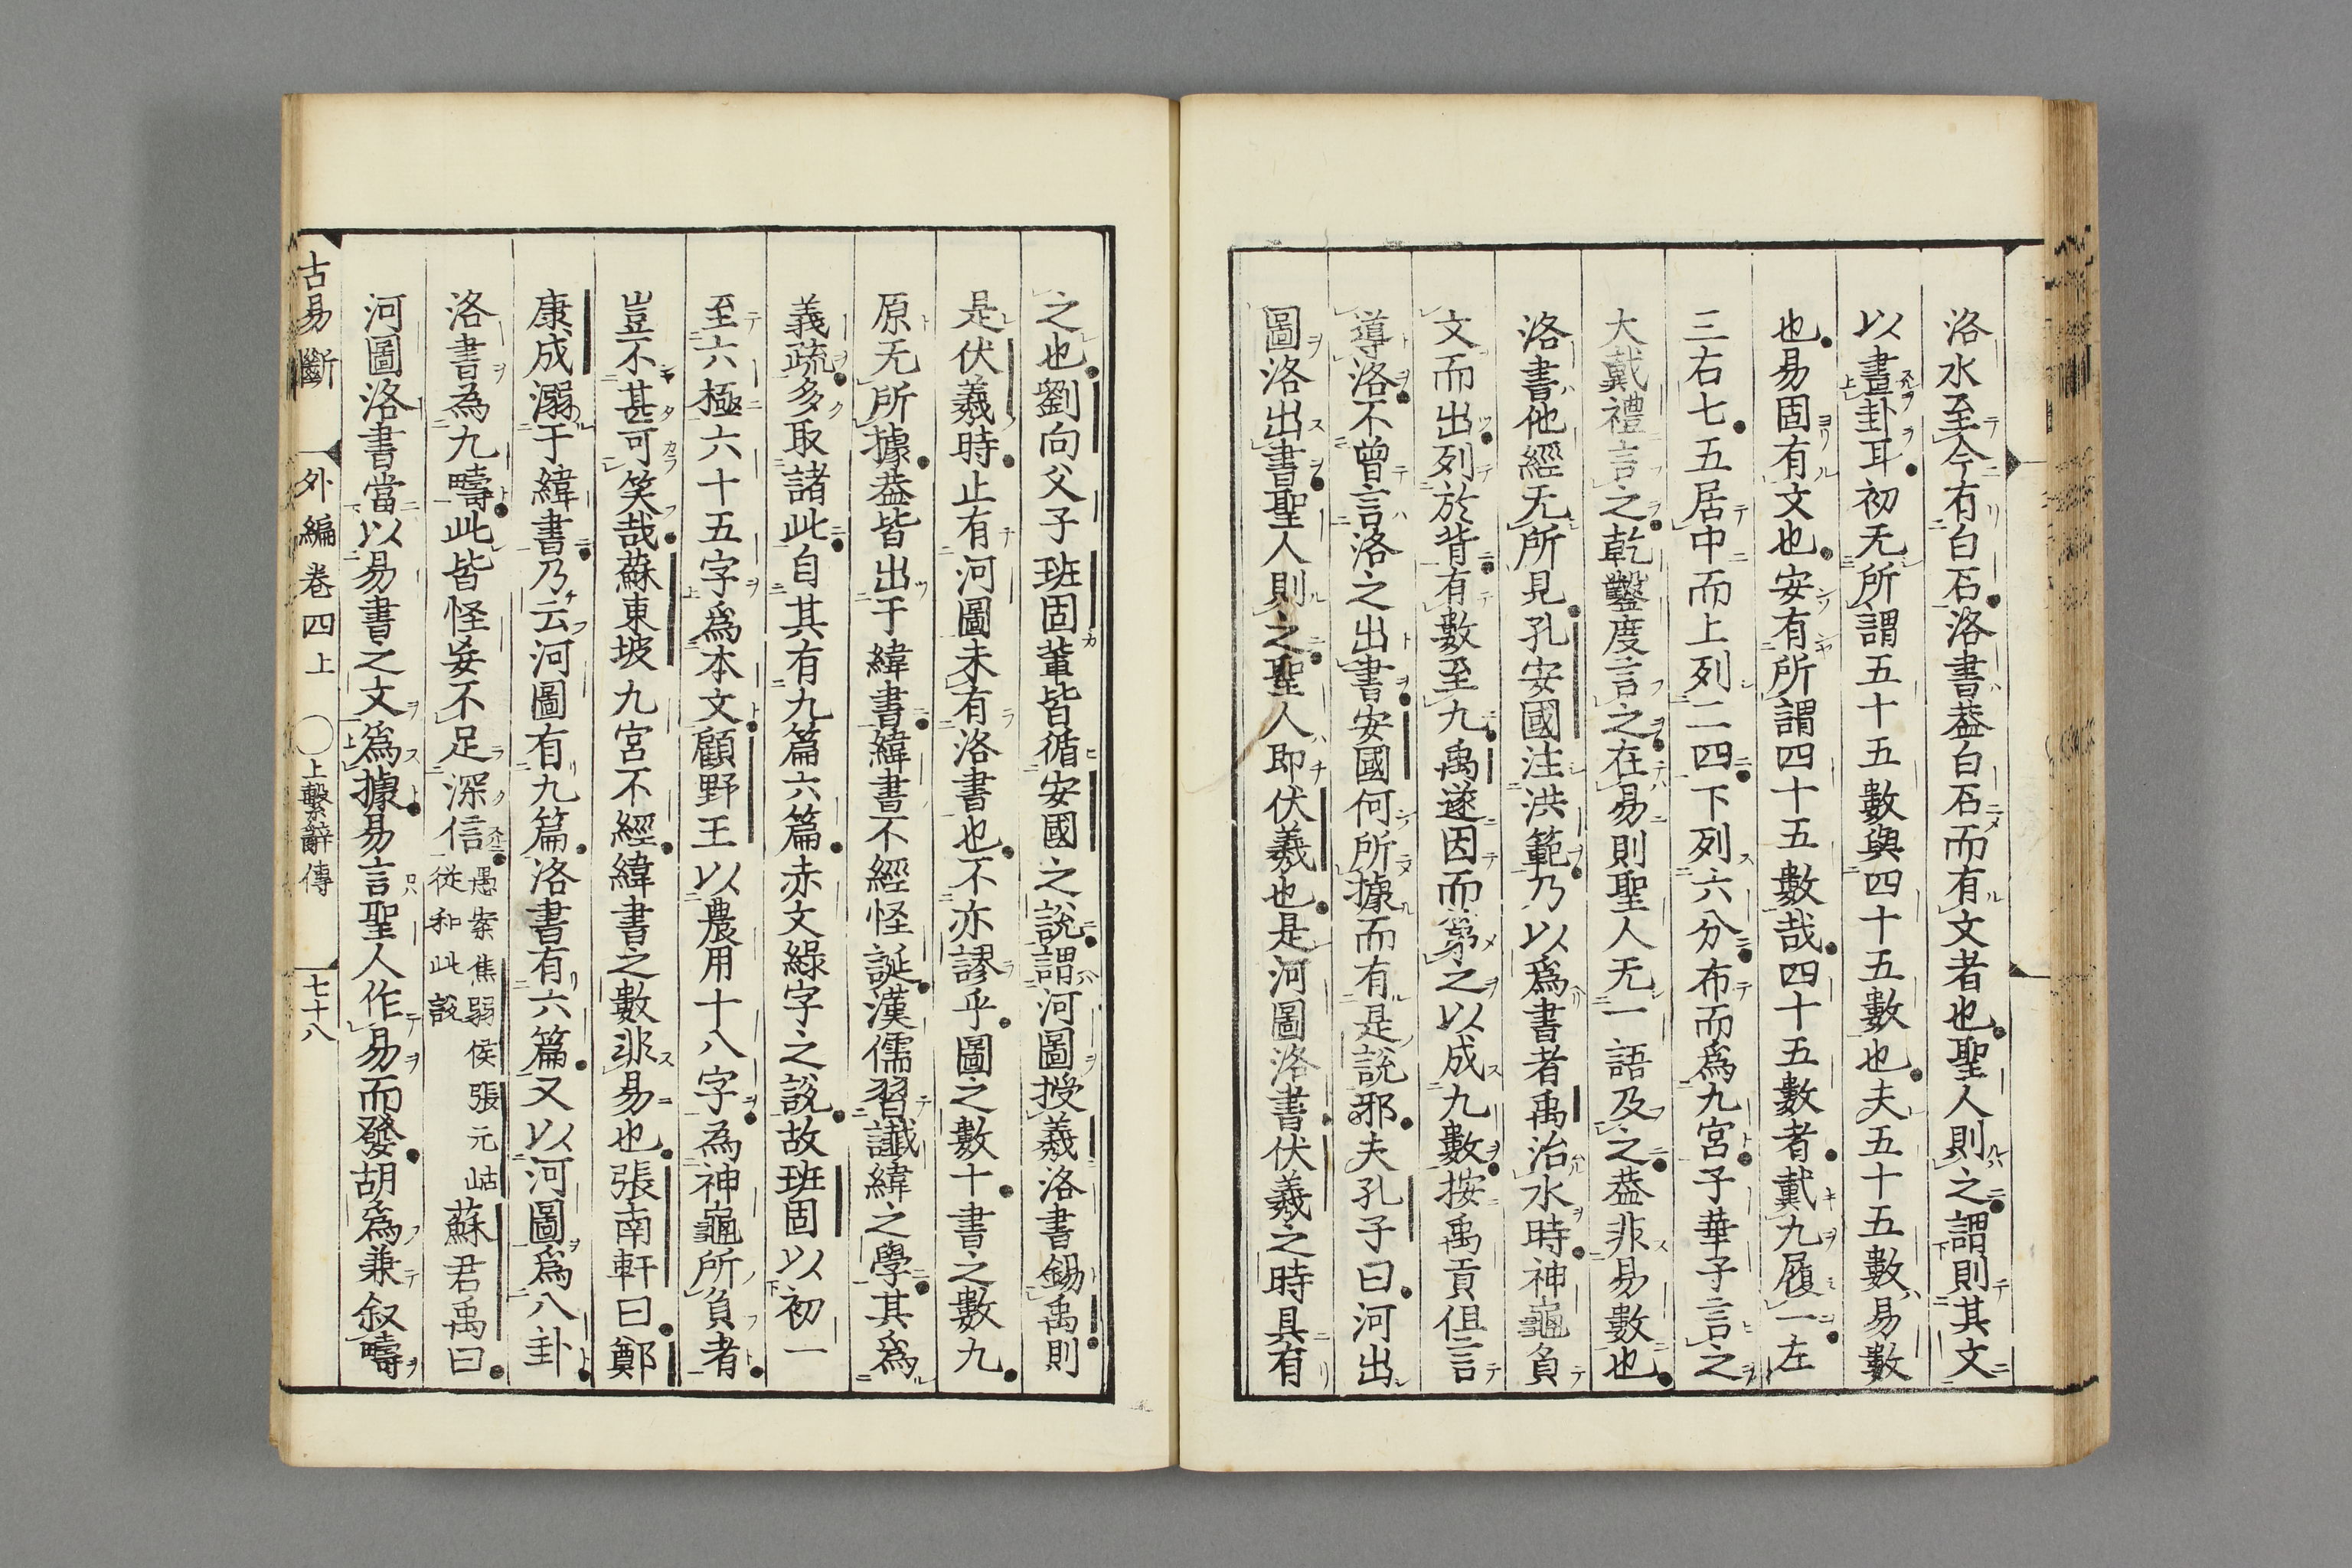 洛水至今有白石洛書葢白石而有文者也聖人則之謂則其文
以畫卦耳初无所謂五十五數與四十五數也夫五十五數易數
也易固有文也安有所謂四十五數哉四十五數者戴九履一左
三右七五居中而上列二四下列六分布而爲九宮子華子言之
大戴禮言之乾鑿度言之在易則聖人无一語及之葢非易數也
洛書他經无所見孔安國注洪範乃以爲書者禹治水時神龜負
文而出列於背有數至九禹遂因而第之以成九數按禹貢但言
導洛不曾言洛之出書安國何所據而有是説邪夫孔子曰河出
圖洛出書聖人則之聖人即伏羲也是河圖洛書伏羲之時具有
之也劉向父子班固軰皆循安國之説謂河圖授羲洛書錫禹則
是伏羲時止有河圖未有洛書也不亦謬乎圖之數十書之數九
原无所據葢皆出于緯書緯書不經怪誕漢儒習讖緯之學其爲
義疏多取諸此自其有九篇六篇赤文綠字之説故班固以初一
至六極六十五字爲本文顧野王以農用十八字為神龜所負者
豈不甚可笑哉蘇東坡九宮不經緯書之數非易也張南軒曰鄭
康成溺于緯書乃云河圖有九篇洛書有六篇又以河圖爲八卦
洛書為九疇此皆怪妄不足深信愚案焦弱侯張元岵從和此説蘇君禹曰
河圖洛書當以易書之文爲據易言聖人作易而發胡爲兼叙疇
古易斷 外編卷四上 ○上繫辭傳 七十八